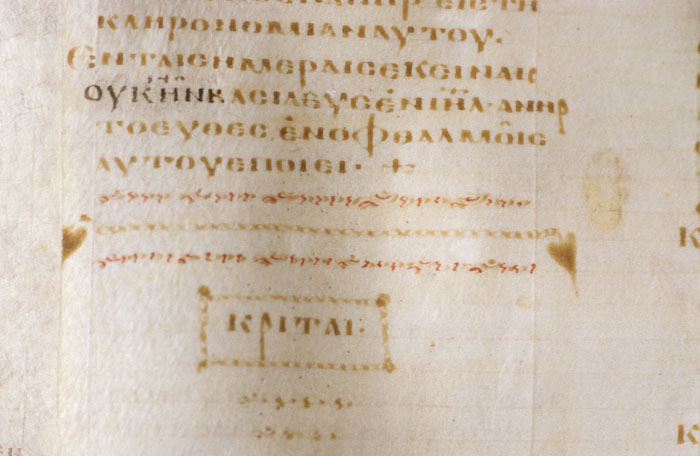 ΑΝΗΡΕΙϹΤΗ
ΚΛΗΡΟΝΟΜΙΑΝΑΥΤΟΥ.
ΕΝΤΑΙϹΗΜΕΡΑΙϹΕΚΕΙΝΑΙϹ
ΟΥΚΗΝΒΑϹΙΛΕΥϹΕΝΙΗ̅Λ·ΑΝΗΡ
ΤΟΕΥΘΕϹΕΝΟΦΘΑΛΜΟΙϹ
ΑΥΤΟΥΕΠΟΙΕΙ· +
ΚΡΙΤΑΙ·
Κ
Κ